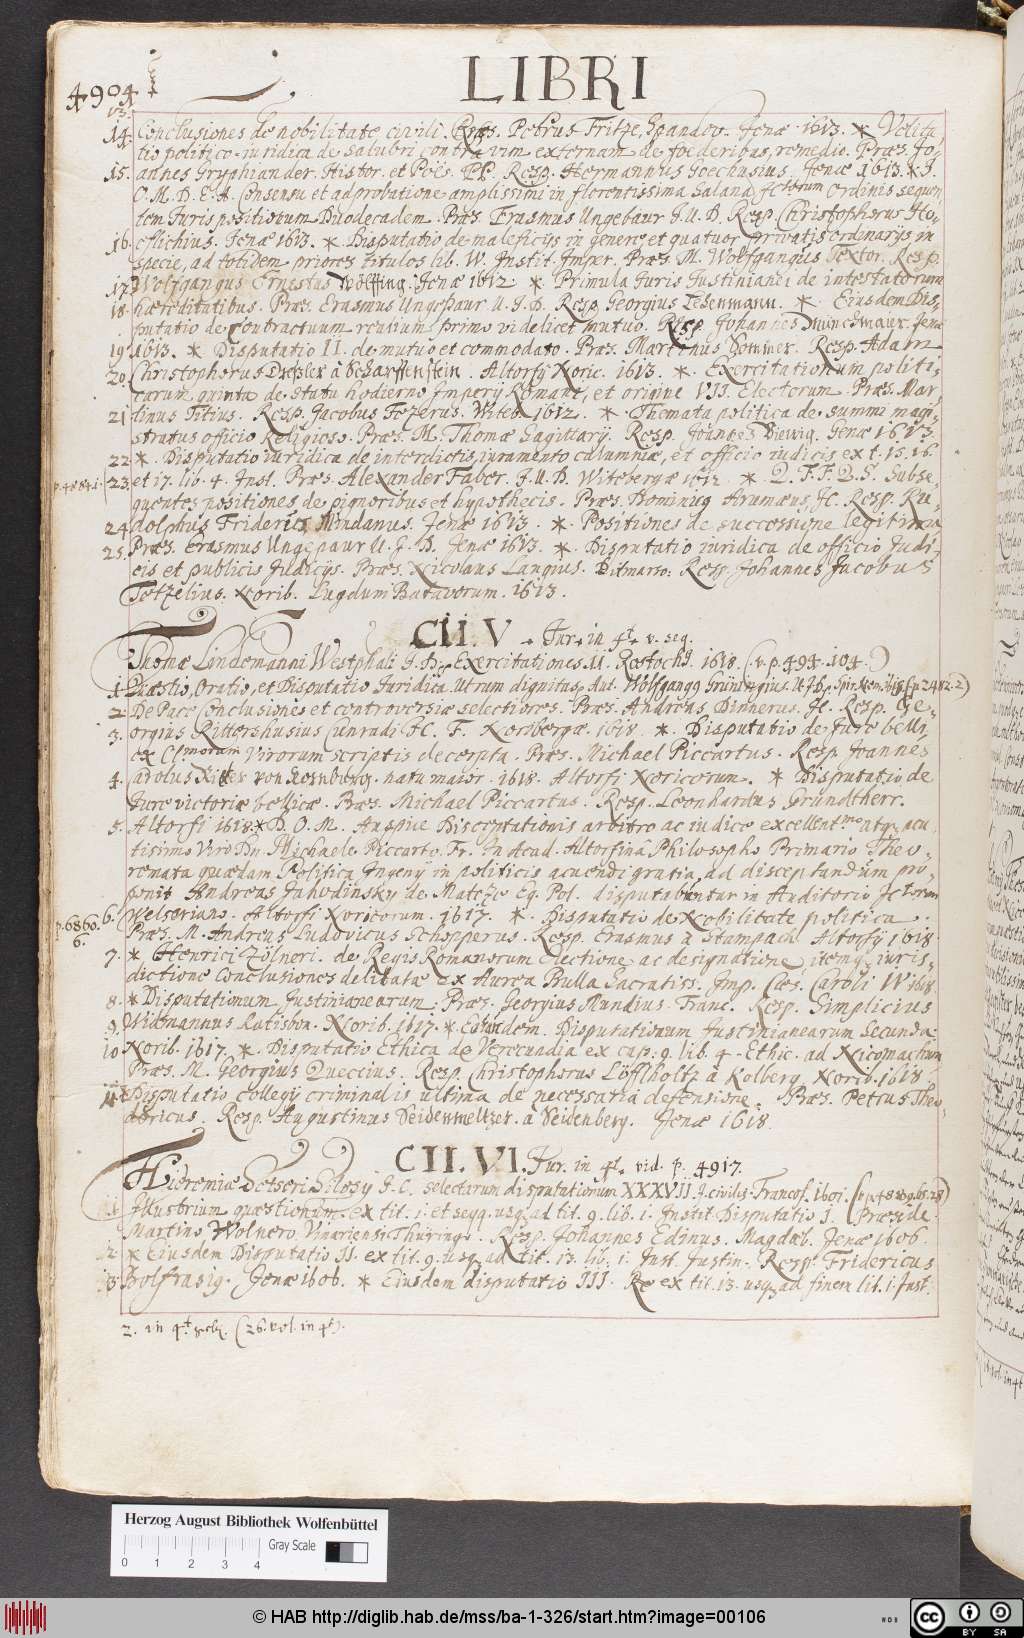 4904
LIBRI
13.
14. Conclusiones de nobilitate civili. Præs. Petrus Fritze, Spandov. Jenæ 1613. * Velita-
tio politico-iuridica de salubri contra vim externam de foederibus, remedio. Præs. Jo-
15. annes Gryphiander. Histor. et Poës. PP. Resp. Hermannus Goeckusius Jenæ 1613. * J.
O. M. D. E. A. Consensu et adprobatione amplissimi in florentissima Salana Jctorum ordinis sequen-
tem Juris positionum Duodecadem. Præs. Erasmus Ungebaur J. U. D. Resp. Christophorus Ho-
16. eflichius. Jenæ 1613. * Disputatio de maleficijs in genere et quatuor privatis ordinarijs in
specie, ad totidem priores titulos lib. IV. Instit. Imper. Præs. M. Wolfgangus Textor. Resp.
17. Wolfgangus Ernestus Wölffing. Jenæ 1612 * Primula Juris Justinianei de intestatorum
18. hæreditatibus. Præs. Erasmus Ungepaur U. J. D. Resp. Georgius Tesenmann. * Eiusdem Dis-
putatio de Contractuum realium primo videlicet mutuo. Resp. Johannes Münchmaier. Jenæ
19. 1613. * Disputatio II. de mutuo et commodato. Præs. Martinus Sommer. Resp. Adam
20. Christophorus Dressler à Scharffenstein. Altorfij Noric. 1613. * Exercitationum politi-
carum quinta de statu hodierno Imperij Romani, et origine VII. Electorum. Præs. Mar-
21. tinus Titius. Resp. Jacobus Fezerus. Witeb. 1612. * Themata politica de summi magi-
stratus officio Religioso. Præs. M. Thomæ Sagittarij. Resp. Joannes Diewig. Jenæ 1613.
22. * Disputatio iuridica de interdictis iuramento calumniæ, et officio iudicis ex t. 15. 16.
p. 4884. 1. 23. et 17. lib. 4. Inst. Præs. Alexander Faber. J. U. D. Witebergæ 1612. * Q. F. F. Q. S. Subse-
quentes positiones de pignoribus et hypothecis. Præs. Dominicus Arumæus, Jc. Resp. Ru-
24. dolphus Friderici Mindanus. Jenæ 1613. * Positiones de successione legitima
25. Præs. Erasmus Ungepaur U. J. D. Jenæ 1613. * Disputatio iuridica de officio Judi-
cis et publicis Judicijs. Præs. Nicolaus Langius. Ditmarso: Resp. Johannes Jacobus
Tetzelius. Norib. Lugduni Batavorum. 1613.
CII. V. Jur. in 4t. v. seq.
Thomæ Lindemanni Westphali J. D. Exercitationes. 11. Rostochij. 1618. (v. p. 494. 104.)
1. Quæstio, Oratio, et Disputatio Juridica. Utrum dignitas dut. Wolfgangg Grüningius U. J. D. Spir. Nem. 1618. (p 2482. 2)
2. De Pace Conclusiones et controversiæ selectiores. Præs. Andreas Dinnerus. Jc. Resp. Ge-
3. orgius Rittershusius Cunradi JC. F. Noribergæ 1618 * Disputatio de Jure belli
ex Cl.morum Virorum scriptis decerpta. Præs. Michael Piccartus. Resp. Joannes
4. adolus Ritter von Kornburg. natu maior. 1618. Altorfj Noricorum. * Disputatio de
Jure victoriæ bellicæ. Præs. Michael Piccartus. Resp. Leonhardus Grundtherr.
5. Altorfi 1618. * D. O. M. Auspice Disceptationis arbitro ac iudice excellent.mo atque acu-
tissimo Viro Dn. Michaele Piccarto. Fr. In Acad. Altorfinâ Philosopho Primario Theo-
remata quædam Politica Ingenij in politicis acuendi gratia, ad disceptandum pro-
ponit Andreas Jahodinsky de Matczie Eq. Pol. disputabuntur in Auditorio Jctorum
p. 6860. 6. 6. Welseriano. Altorfi Noricorum. 1617. * Disputatio de Nobilitate politica.
Præs. M. Andreas Ludovicus Schopperus. Resp. Erasmus à Stampach. Altorfij 1618
7. * Henrici Zölneri. de Regis Romanorum Electione ac designatione, itemq; iuris-
dictione Conclusiones delibatæ ex Aurea Bulla Sacratiss. Imp. Cæs. Caroli IV 1618.
8. * Disputationum Justinianearum. Præs. Georgius Mundius. Franc. Resp. Simplicius
9. Widmannus Ratisbon. Norib. 1617. * Earundem Disputationum Justinianearum Secunda
10. Norib. 1617. * Disputatio Ethica de Verecundia ex cap: 9. lib. 4. Ethic. ad Nicomachum
Præs. M. Georgius Queccius. Resp. Christophorus Löffelholtz à Kolberg. Norib. 1618.
11. Disputatio collegij criminalis ultima de necessaria defensione. Præs. Petrus Theo-
doricus. Resp. Augustinus Seidenmeltzer. à Seidenberg. Jenæ 1618.
CII. VI. Jur. in 4t. vid. p. 4917.
Hieremiæ Setseri Silesij J. C. selectarum disputationum XXXVII. J. civilis. Francof. 1601. (v. p. 4889. 65. 28)
1. Illustrium quæstionum ex tit. 1. et seqq. usq; ad tit. 9. lib. 1. Instit Disputatio I. Præside.
Martino Wolnero. Vinariensi Thüring. Resp. Johannes Edinus. Magdæb. Jenæ 1606.
2. * Eiusdem Disputatio II. ex tit. 9. usq; ad tit. 13. lib. 1. Inst. Justin. Resp. Fridericus
3. Wolfrasig. Jenæ 1606. * Eiusdem disputatio III. Re ex tit. 13. usq; ad finem lib. 1. Inst.
2. in 4t. (26. vol. in 4t).
Herzog August Bibliothek Wolfenbüttel
0 1 2 3 4
Gray Scale
© HAB http://diglib.hab.de/mss/ba-1-326/start.htm?image=00106
WDB
cc BY SA